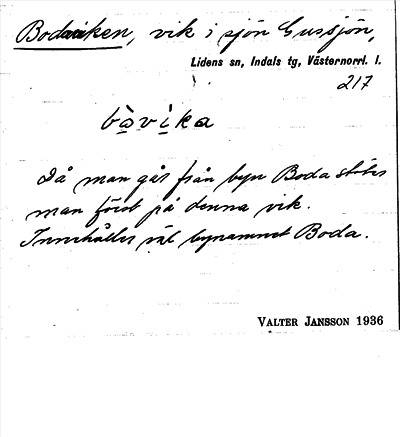 Bodaviken, vik i sjön Gussjön,
Lidens sn, Indals tg, Västernorrl. l.
217
bò̠vì̠ka
Då man går från byn Boda stöter
man först på denna vik.
Innehåller väl bynamnet Boda.
VALTER JANSSON 1936